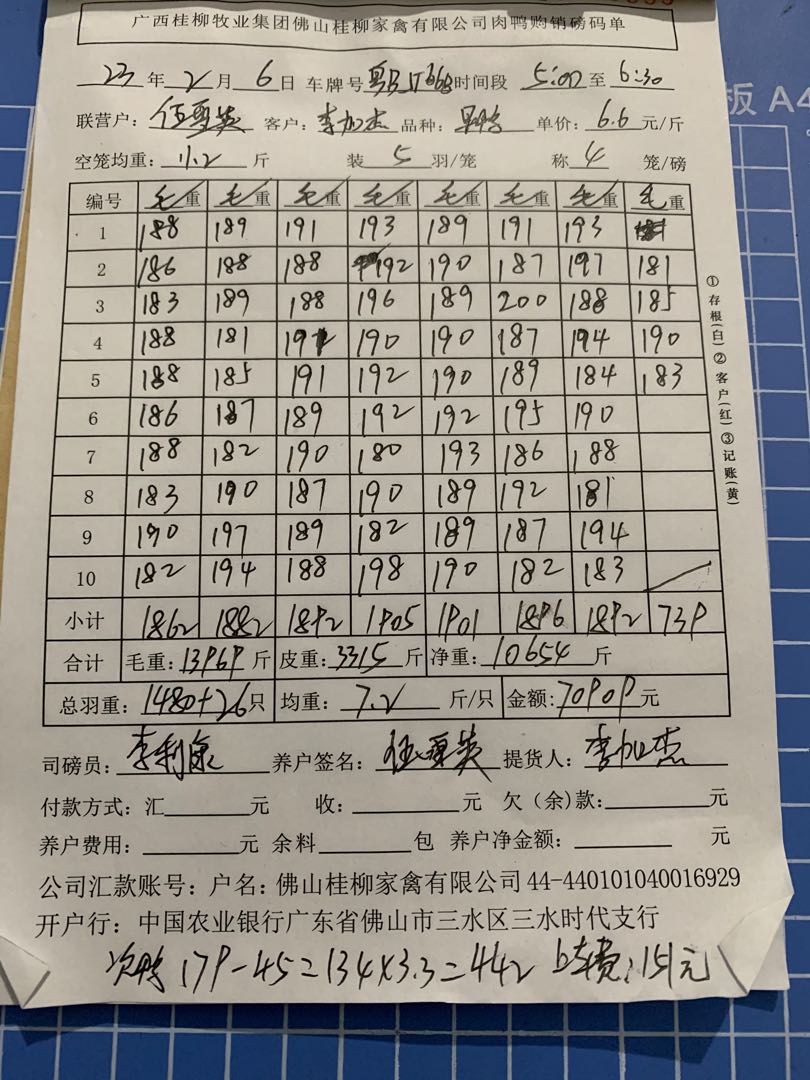 广西桂柳牧业集团佛山桂柳家禽有限公司肉鸭购销磅码单
23年2月6日 车牌号 时间段 5:00至6:30
联营户: 客户:李加杰 品种: 单价:6.6元/斤
空笼均重:11.2斤 装5羽/笼 称4笼/磅
编号 毛重 毛重 毛重 毛重 毛重 毛重 毛重 毛重
1 188 189 191 193 189 191 193
2 186 188 188 192 190 187 197 181
3 183 189 188 196 189 200 188 185
4 188 181 190 190 187 194 190
5 188 185 191 192 190 189 184 183
6 186 187 189 192 192 195 190
7 188 182 190 180 193 186 188
8 183 190 187 190 189 192 181
9 190 197 189 182 189 187 194
10 182 194 188 198 190 182 183
小计 1862 1882 1892 1905 1901 1896 1892 739
合计 毛重:13969斤 皮重:3315斤 净重:10654斤
总羽重:1480+26只 均重:7.2斤/只 金额:70909元
司磅员:李利康 养户签名: 提货人:李加杰
付款方式:汇 元 收: 元 欠(余)款: 元
养户费用: 元 余料 包 养户净金额: 元
公司汇款账号:户名:佛山桂柳家禽有限公司44-440101040016929
开户行:中国农业银行广东省佛山市三水区三水时代支行
次鸭179-45=134×3.3=442 上车费:151元
①存根(白)②客户(红)③记账(黄)
板 A4